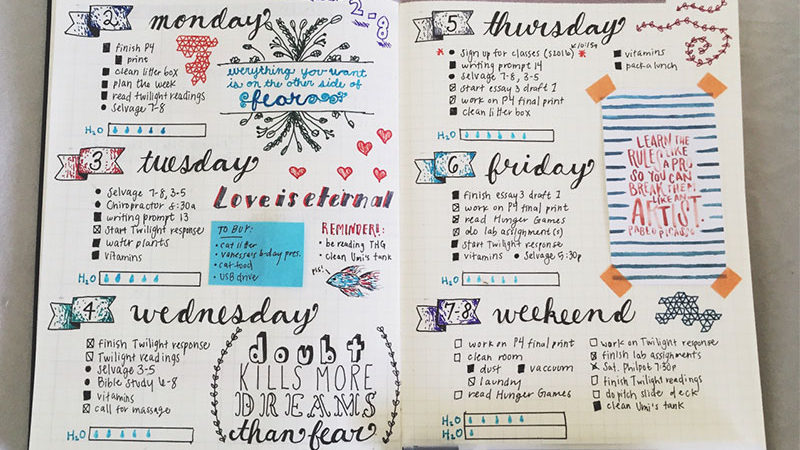 2 monday
finish P4
print
clean litter box
plan the week
read twilight readings
Selvage 7-8
H₂O
2.8
everything you want
is on the other side of
fear
3 tuesday
Selvage 7-8, 3-5
Chiropractor 8:30a
writing prompt 13
start Twilight response
water plants
vitamins
H₂O
Love is eternal
TO BUY:
cat litter
vanessa's b-day pres.
cat food
USB drive
REMINDER!:
be reading THG
clean Umi's tank
4 wednesday
finish Twilight response
Twilight readings
Selvage 3-5
Bible Study 6-8
vitamins
call for massage
H₂O
doubt
KILLS MORE
DREAMS
than fear
5 thursday
sign up for classes (S2016)
writing prompt 14
selvage 7-8, 3-5
start essay 3 draft 1
work on P4 final print
clean litter box
vitamins
pack a lunch
H₂O
LEARN THE
RULES LIKE
A PRO
SO YOU CAN
BREAK THEM
LIKE AN
ARTIST.
PABLO PICASSO
6 friday
finish essay 3 draft 1
work on P4 final print
read Hunger Games
do lab assignment(s)
start Twilight response
vitamins
Selvage 5:30p
H₂O
7-8 weekeend
work on P4 final print
clean room
dust
vaccuum
laundry
read Hunger Games
work on Twilight response
finish lab assignments
Sat. Philpot 7:30p
finish Twilight readings
do pitch slide deck
clean Umi's tank
H₂O
H₂O